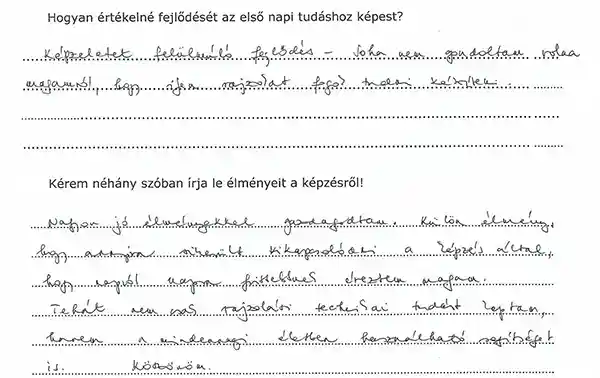 Hogyan értékelné fejlődését az első napi tudáshoz képest?
Képzeletet felülmúló fejlődés – Soha nem gondoltam volna
magamról, hogy ilyen rajzokat fogok tudni készíteni.
Kérem néhány szóban írja le élményeit a képzésről!
Nagyon jó élményekkel gazdagodtam. Külön élmény,
hogy annyira sikerült kikapcsolódni a képzés által,
hogy napról napra frissebbnek éreztem magam.
Tehát nem csak rajzolási technikai tudást kaptam,
hanem a mindennapi életben használható segítséget
is. Köszönöm.